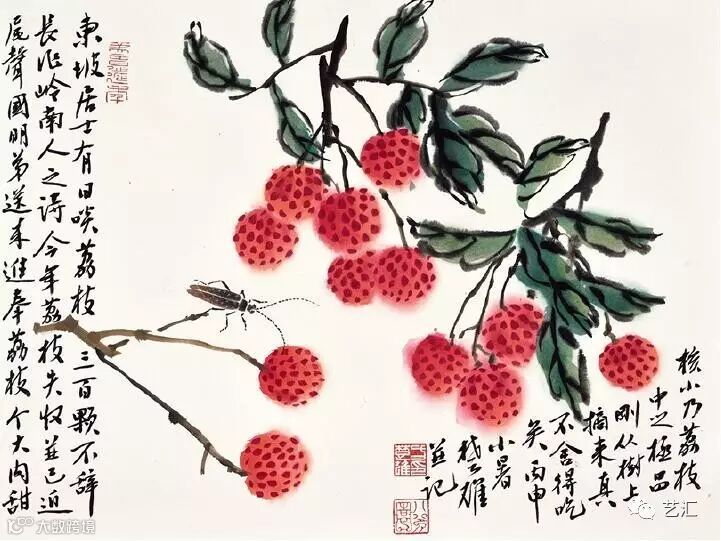 東坡居士有日啖荔枝三百顆不辭
長作嶺南人之詩今年荔枝失收並已近
尾聲國明弟送來進奉荔枝个大肉甜
核小乃荔枝
中之極品
剛从樹上
摘來真
不舍得吃
矣丙申
小暑
雄
並记
大数跨境
艺汇